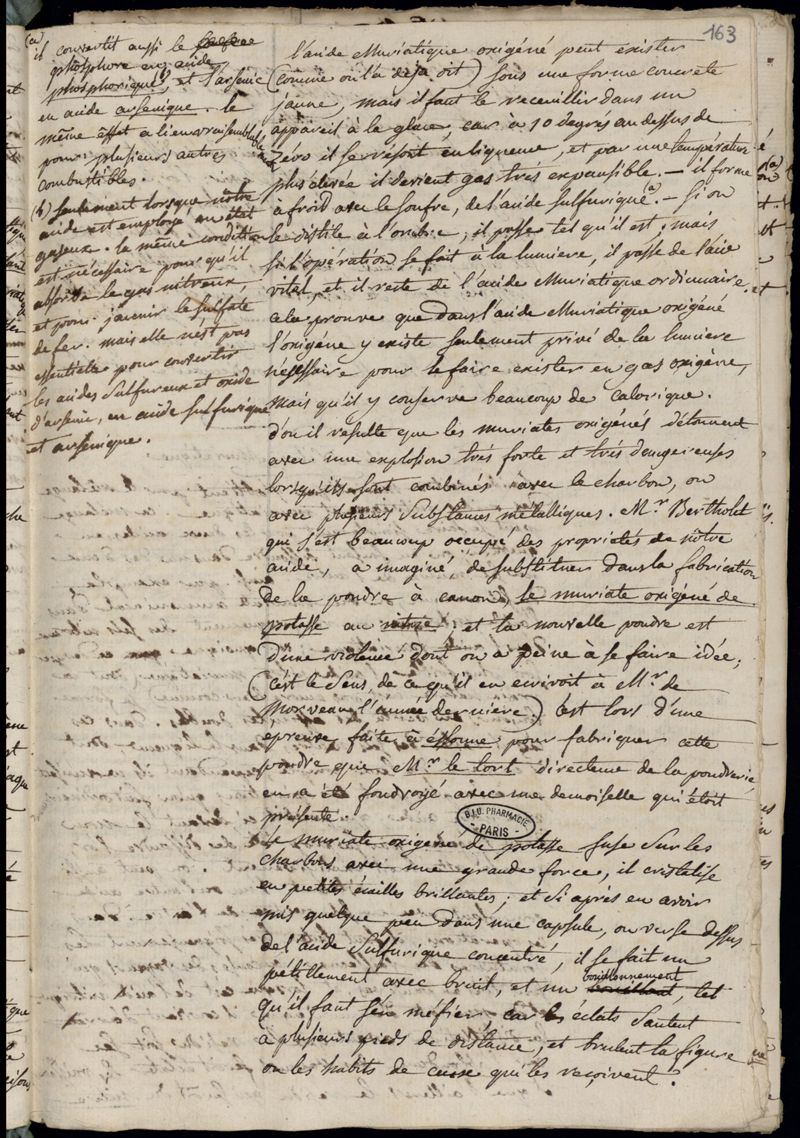 163
(a)
il convertit aussi le soufre
phosphore en acide
phosphorique, et l'arsenic
en acide arsenique. le
même effet a lieu vraisemblable
ment
pour plusieurs autres
combustibles.
(b) seulement lorsque notre
acide est employé en état
gaseux. la même condition
est nécessaire pour qu'il
absorbe le gas nitreux,
et pour jaunir le sulfate
de fer. mais elle n'est pas
essentielle pour convertir
les acides sulfureux et oxide
d'arsenic, en acide sulfurique
et arsenique.
l'acide Muriatique oxigéné peut exister
(comme on l'a deja dit) sous une forme concrete
jaune, mais il faut le receuillir dans un
appareil à la glace, car à 10 degrés au dessus de
Zéro il se résout en liqueur, et par une température
plus élevée il devient gas trés expansible. — il forme
à froid avec le soufre, de l'acide sulfurique (a). — Si on
le distile à l'ombre, il passe tel qu'il est, mais
si l'operation se fait à la lumiere, il passe de l'air
vital, et il reste de l'acide Muriatique ordinaire.
cela prouve que dans l'acide Muriatique oxigéné
l'oxigéne y existe seulement privé de la lumiere
nécessaire pour le faire exister en gas oxigène,
mais qu'il y conserve beaucoup de calorique.
d'ou il resulte que les muriates oxigénés détonnent
avec une explosion trés forte et trés dangereuses
lorsqu'ils sont combinés avec le charbon, ou
avec plusieurs substances métalliques. Mr. Bertholet
qui s'est beaucoup occupé des propriétés de notre
acide, a imaginé, de substituer dans la fabrication
de la poudre à canon, le muriate oxigéné de
potasse au nitre, et la nouvelle poudre est
d'une violence dont on a peine à se faire idée;
(c'est le sens, de ce qu'il en ecrivoit à Mr. de
Morveau l'année derniere) c'est lors d'une
épreuve faite à essonne pour fabriquer cette
poudre que Mr. le tort directeur de la poudrerie
en a été foudroyé avec une demoiselle qui étoit
présente.
B.I.U. PHARMACIE
PARIS
le muriate oxigené de potasse fuse sur les
charbons avec une grande force, il cristalise
en petites écailles brillantes; et si aprés en avoir
mis quelque peu dans une capsule, on verse dessus
de l'acide sulfurique concentré, il se fait un
pétillement avec bruit, et un bouillonnement, tel
qu'il faut s'en méfier car les éclats sautent
à plusieurs pieds de distance, et brulent la figure
ou les habits de ceux qui les reçoivent.